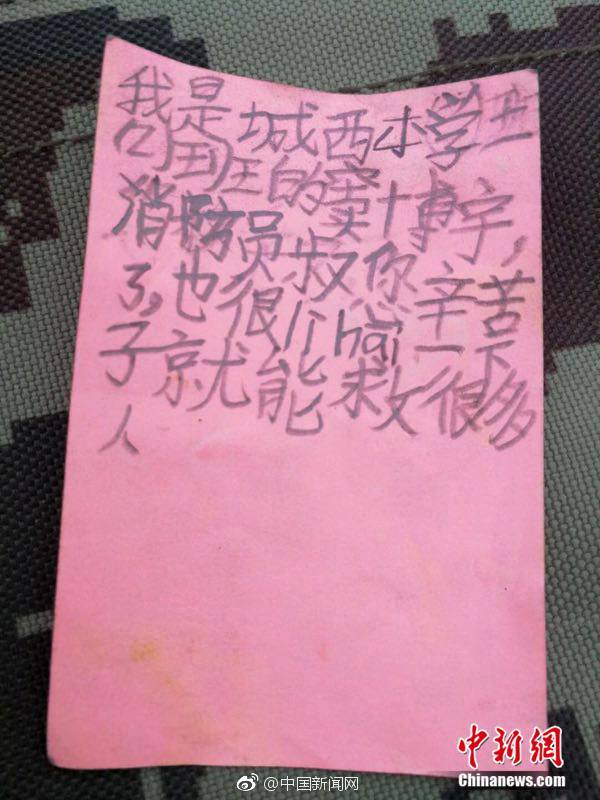 我是城西小学
班的窦博宇,
消防员叔您辛苦
了,也很厉hai一下
子就能救很多
人
中新网
Chinanews.com
@中国新闻网